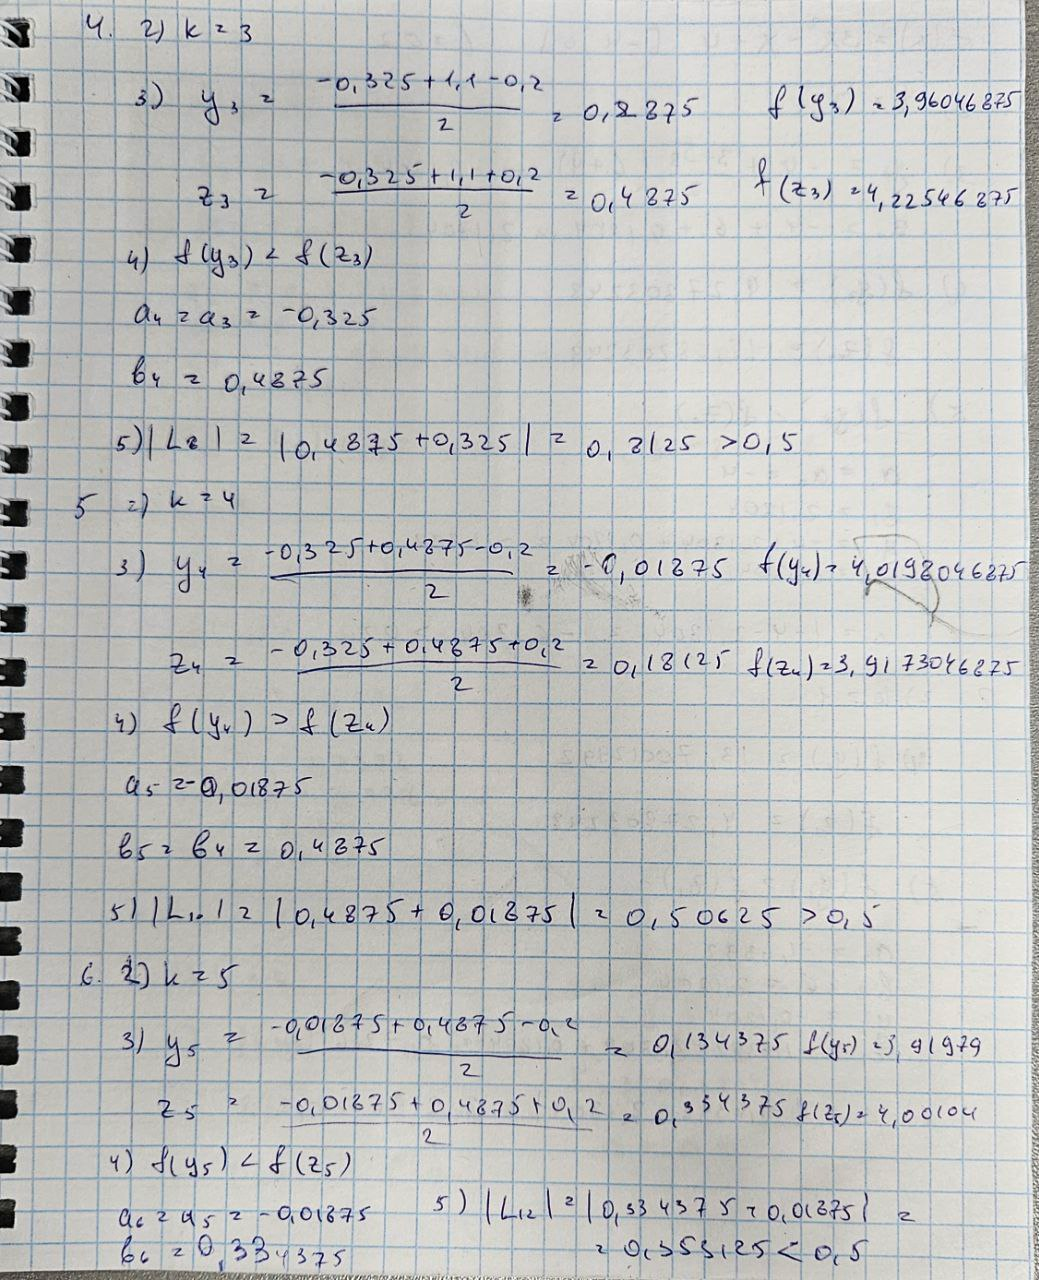 4. 2) k = 3
3) y₃ = (-0,325+1,1-0,2)/2 = 0,2875 f(y₃) = 3,96046875
z₃ = (-0,325+1,1+0,2)/2 = 0,4875 f(z₃) = 4,22546875
4) f(y₃) < f(z₃)
a₄ = a₃ = -0,325
b₄ = 0,4875
5) |L₈| = |0,4875+0,325| = 0,8125 > 0,5
5 2) k = 4
3) y₄ = (-0,325+0,4875-0,2)/2 = -0,01875 f(y₄) = 4,0198046875
z₄ = (-0,325+0,4875+0,2)/2 = 0,18125 f(z₄) = 3,9173046875
4) f(y₄) > f(z₄)
a₅ = -0,01875
b₅ = b₄ = 0,4875
5) |L₁₀| = |0,4875+0,01875| = 0,50625 > 0,5
6. 2) k = 5
3) y₅ = (-0,01875+0,4875-0,2)/2 = 0,134375 f(y₅) = 3,91979
z₅ = (-0,01875+0,4875+0,2)/2 = 0,334375 f(z₅) = 4,00104
4) f(y₅) < f(z₅)
a₆ = a₅ = -0,01875 5) |L₁₂| = |0,334375+0,01875| =
b₆ = 0,334375 = 0,353125 < 0,5